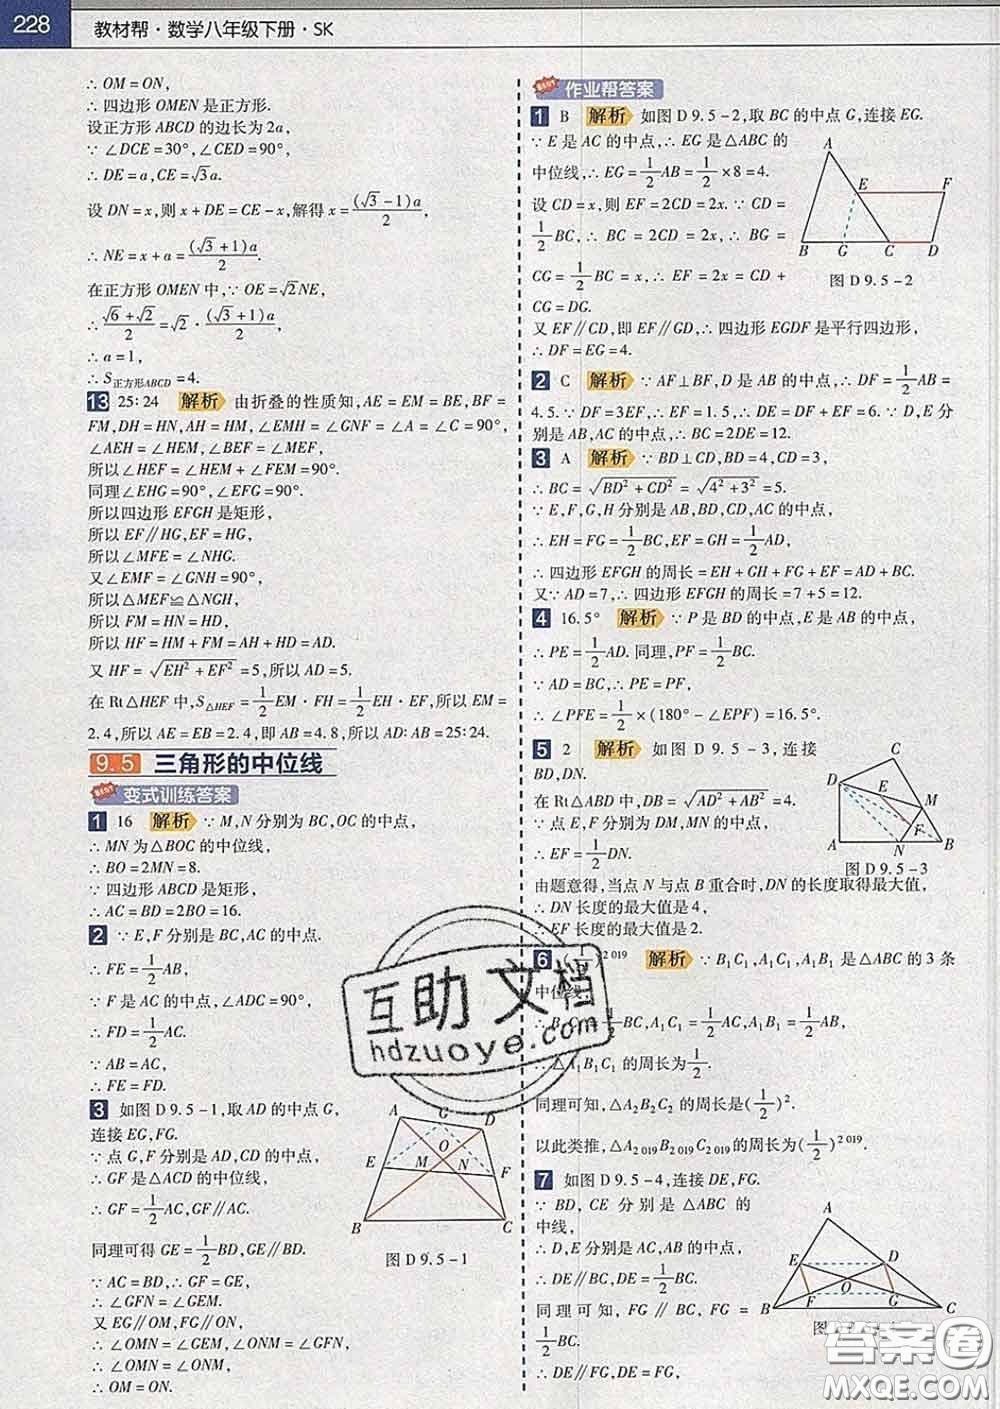 228
教材帮·数学八年级下册·SK
∴ OM = ON,
∴ 四边形 OMEN 是正方形.
设正方形 ABCD 的边长为 2a,
∵ ∠DCE = 30°, ∠CED = 90°,
∴ DE = a, CE = √3a.
设 DN = x, 则 x + DE = CE - x, 解得 x = (√3-1)a/2,
∴ NE = x + a = (√3+1)a/2.
在正方形 OMEN 中, ∵ OE = √2NE,
∴ (√6+√2)/2 = √2 · (√3+1)a/2,
∴ a = 1,
∴ S正方形ABCD = 4.
13 25∶24 解析 由折叠的性质知, AE = EM = BE, BF =
FM, DH = HN, AH = HM, ∠EMH = ∠GNF = ∠A = ∠C = 90°,
∠AEH = ∠HEM, ∠BEF = ∠MEF,
所以 ∠HEF = ∠HEM + ∠FEM = 90°.
同理 ∠EHG = 90°, ∠EFG = 90°.
所以四边形 EFGH 是矩形,
所以 EF∥HG, EF = HG,
所以 ∠MFE = ∠NHG.
又 ∠EMF = ∠GNH = 90°,
所以 △MEF≌△NGH,
所以 FM = HN = HD,
所以 HF = HM + FM = AH + HD = AD.
又 HF = √(EH² + EF²) = 5, 所以 AD = 5.
在 Rt△HEF 中, S△HEF = 1/2 EM · FH = 1/2 EH · EF, 所以 EM =
2.4, 所以 AE = EB = 2.4, 即 AB = 4.8, 所以 AD∶AB = 25∶24.
9.5 三角形的中位线
变式训练答案
1 16 解析 ∵ M, N 分别为 BC, OC 的中点,
∴ MN 为 △BOC 的中位线,
∴ BO = 2MN = 8.
∵ 四边形 ABCD 是矩形,
∴ AC = BD = 2BO = 16.
2 ∵ E, F 分别是 BC, AC 的中点.
∴ FE = 1/2 AB,
∵ F 是 AC 的中点, ∠ADC = 90°,
∴ FD = 1/2 AC.
∵ AB = AC,
∴ FE = FD.
3 如图 D 9.5-1, 取 AD 的中点 G,
连接 EG, FG.
∵ 点 G, F 分别是 AD, CD 的中点,
∴ GF 是 △ACD 的中位线,
∴ GF = 1/2 AC, GF∥AC.
同理可得 GE = 1/2 BD, GE∥BD.
∵ AC = BD, ∴ GF = GE,
∴ ∠GFN = ∠GEM.
又 EG∥OM, FG∥ON,
∴ ∠OMN = ∠GEM, ∠ONM = ∠GFN,
∴ ∠OMN = ∠ONM,
∴ OM = ON.
A G D
E M O N F
B C
图 D 9.5-1
作业帮答案
1 B 解析 如图 D 9.5-2, 取 BC 的中点 G, 连接 EG.
∵ E 是 AC 的中点, ∴ EG 是 △ABC 的
中位线, ∴ EG = 1/2 AB = 1/2 × 8 = 4.
设 CD = x, 则 EF = 2CD = 2x. ∵ CD =
1/2 BC, ∴ BC = 2CD = 2x, ∴ BG =
CG = 1/2 BC = x, ∴ EF = 2x = CD +
CG = DG.
又 EF∥CD, 即 EF∥GD, ∴ 四边形 EGDF 是平行四边形,
∴ DF = EG = 4.
A
E F
B G C D
图 D 9.5-2
2 C 解析 ∵ AF⊥BF, D 是 AB 的中点, ∴ DF = 1/2 AB =
4.5. ∵ DF = 3EF, ∴ EF = 1.5, ∴ DE = DF + EF = 6. ∵ D, E 分
别是 AB, AC 的中点, ∴ BC = 2DE = 12.
3 A 解析 ∵ BD⊥CD, BD = 4, CD = 3,
∴ BC = √(BD² + CD²) = √(4² + 3²) = 5.
∵ E, F, G, H 分别是 AB, BD, CD, AC 的中点,
∴ EH = FG = 1/2 BC, EF = GH = 1/2 AD,
∴ 四边形 EFGH 的周长 = EH + GH + FG + EF = AD + BC.
又∵ AD = 7, ∴ 四边形 EFGH 的周长 = 7 + 5 = 12.
4 16.5° 解析 ∵ P 是 BD 的中点, E 是 AB 的中点,
∴ PE = 1/2 AD. 同理, PF = 1/2 BC.
∵ AD = BC, ∴ PE = PF,
∴ ∠PFE = 1/2 × (180° - ∠EPF) = 16.5°.
5 2 解析 如图 D 9.5-3, 连接
BD, DN.
在 Rt△ABD 中, DB = √(AD² + AB²) = 4.
∵ 点 E, F 分别为 DM, MN 的中点,
∴ EF = 1/2 DN.
由题意得, 当点 N 与点 B 重合时, DN 的长度取得最大值,
∴ DN 长度的最大值是 4,
∴ EF 长度的最大值是 2.
C
D E M
F
A N B
图 D 9.5-3
6 (1/2)^2 019 解析 ∵ B₁C₁, A₁C₁, A₁B₁ 是 △ABC 的 3 条
中位线,
∴ B₁C₁ = 1/2 BC, A₁C₁ = 1/2 AC, A₁B₁ = 1/2 AB,
∴ △A₁B₁C₁ 的周长为 1/2.
同理可知, △A₂B₂C₂ 的周长是 (1/2)².
以此类推, △A₂₀₁₉B₂₀₁₉C₂₀₁₉ 的周长为 (1/2)^2 019.
7 如图 D 9.5-4, 连接 DE, FG.
∵ BD, CE 分别是 △ABC 的
中线,
∴ D, E 分别是 AC, AB 的中点,
∴ DE∥BC, DE = 1/2 BC.
同理可知, FG∥BC, FG =
1/2 BC.
∴ DE∥FG, DE = FG,
A
E D
O
F G
B C
互助文档
hdzuoye.com
答案圈
MXQE.COM